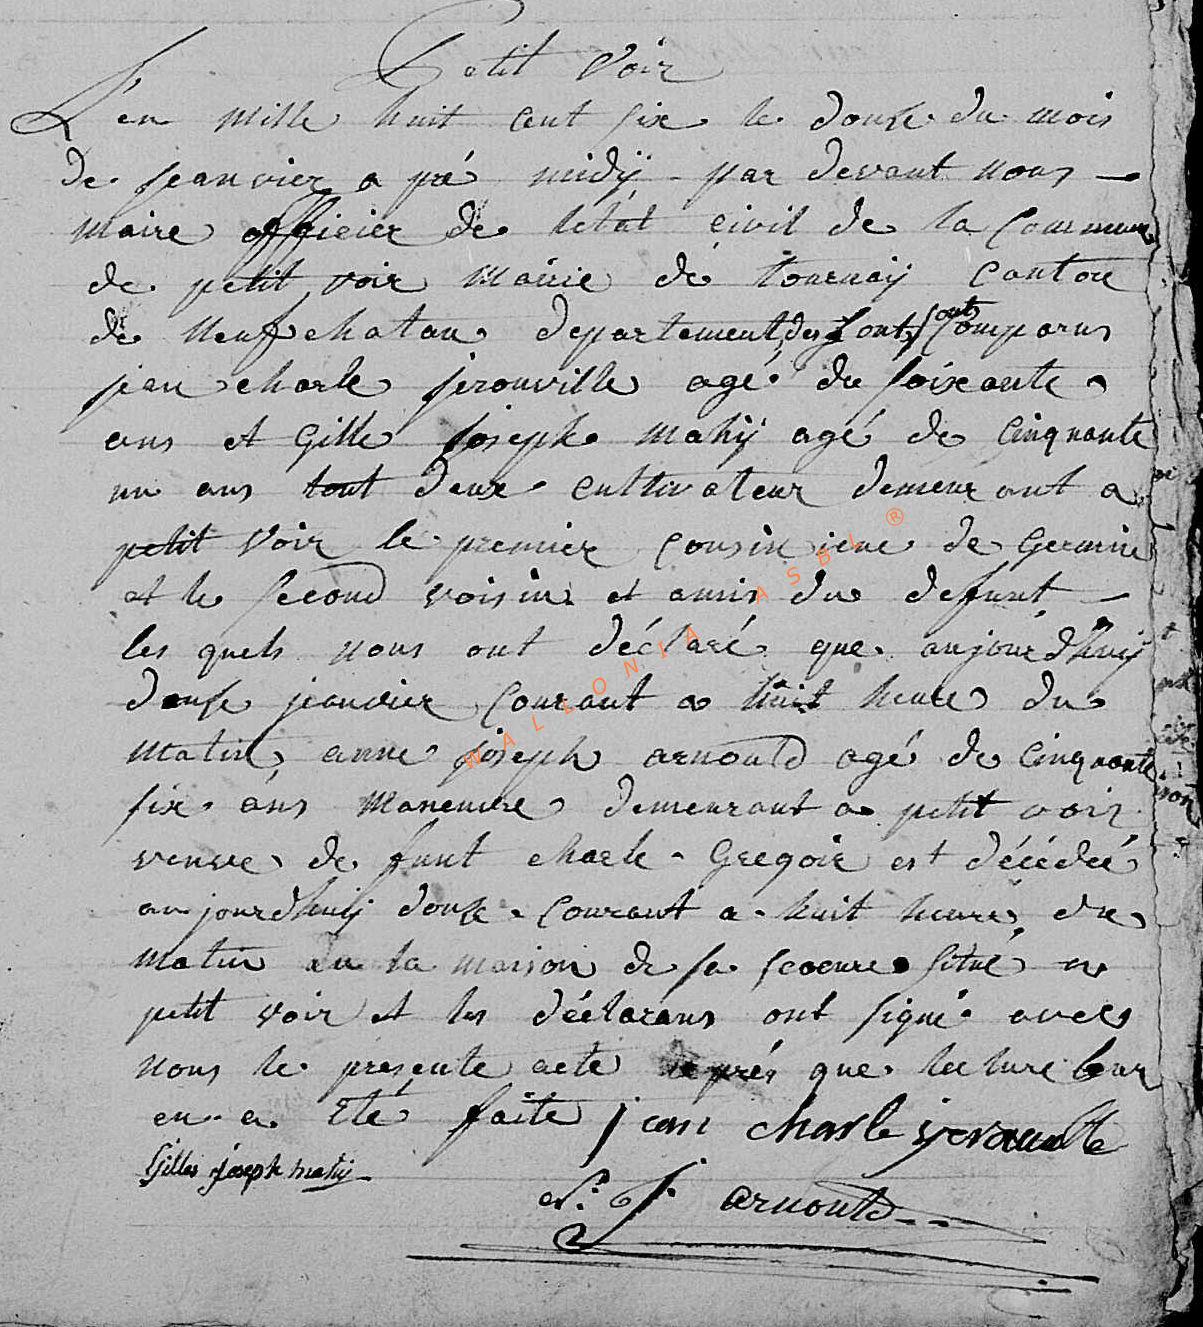 Petit Voir
L'en mille huit cent six le douse du mois
de jeanvier a pré midÿ par devant nous
maire officier de létat civil de la Commune
de petit voir mairie de tournaÿ Canton
de neufchatau departement des foret sont Comparus
jean charle jerouville agé du soixante
ans et Gille joseph mahÿ agé de Cinquante
un ans tout deux cultivateur demeurant a
petit Voir le premier Cousin de Germin
et le second voisin et amis du defunt
les quels nous ont déclaré que aujourdhuÿ
douse jeanvier Courant a huit heure du
matin anne joseph arnould agé de Cinquante
six ans demeurant a petit voir
veuve de funt charle Gregoir est décédeé
aujourdhuÿ douse Courant a huit heure du
matin en la maison de sa scoeure situé a
petit voir et les déclarans ont signé avec
nous le presente acte aprés que lecture leur
en a été faite jean charle jerouville
Gilles joseph mahÿ
J. arnould
WALLONIA ASBL ®